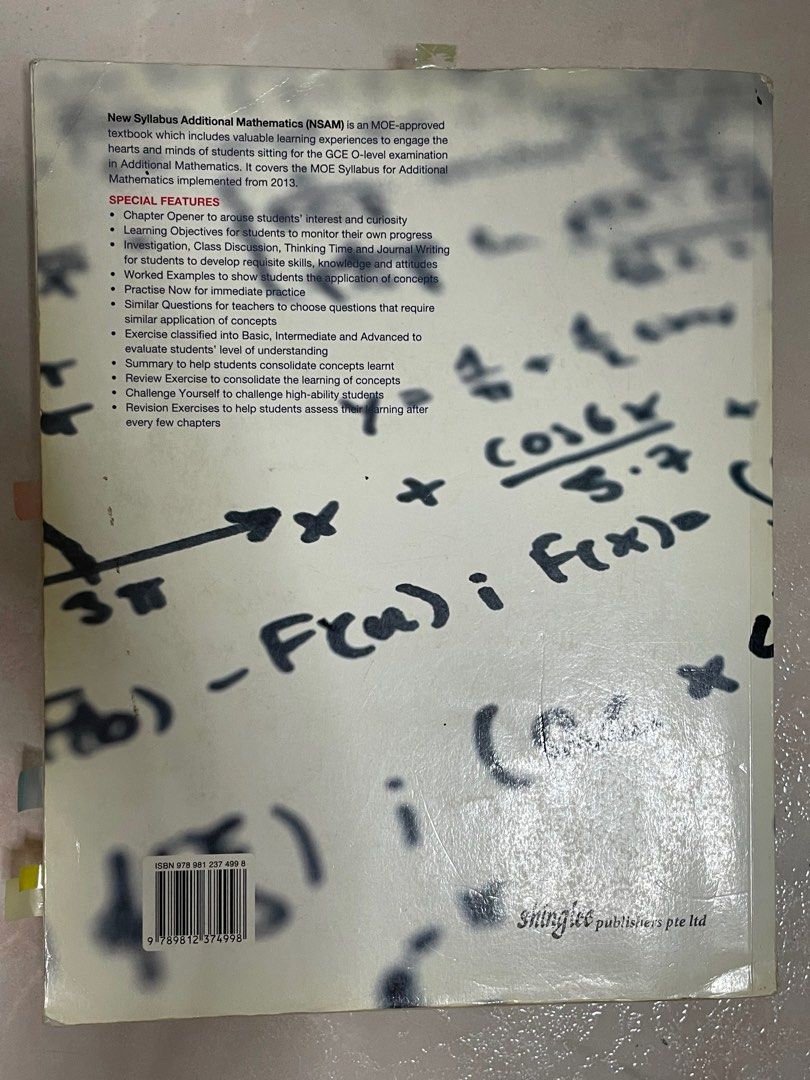 New Syllabus Additional Mathematics (NSAM) is an MOE-approved
textbook which includes valuable learning experiences to engage the
hearts and minds of students sitting for the GCE O-level examination
in Additional Mathematics. It covers the MOE Syllabus for Additional
Mathematics implemented from 2013.
SPECIAL FEATURES
• Chapter Opener to arouse students' interest and curiosity
• Learning Objectives for students to monitor their own progress
• Investigation, Class Discussion, Thinking Time and Journal Writing
for students to develop requisite skills, knowledge and attitudes
• Worked Examples to show students the application of concepts
• Practise Now for immediate practice
• Similar Questions for teachers to choose questions that require
similar application of concepts
• Exercise classified into Basic, Intermediate and Advanced to
evaluate students' level of understanding
• Summary to help students consolidate concepts learnt
• Review Exercise to consolidate the learning of concepts
• Challenge Yourself to challenge high-ability students
• Revision Exercises to help students assess their learning after
every few chapters
cos6x
x x
5.7
3π
- F(a) ; F(x)=
ISBN 978 981 237 499 8
9 789812 374998
shinglee publishers pte ltd